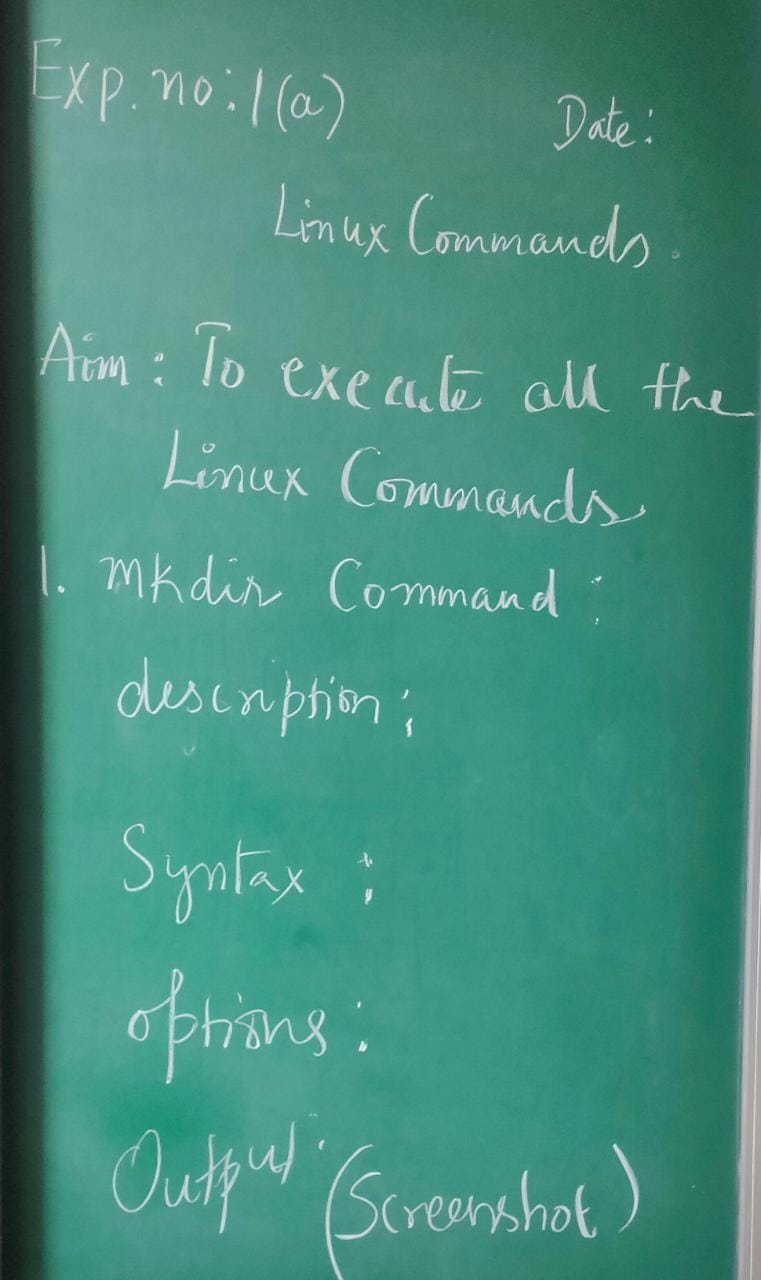 Exp. no: 1(a)
Date:
Linux Commands.
Aim: To execute all the
Linux Commands
1. mkdir Command:
description:
Syntax :
options:
Output: (Screenshot)